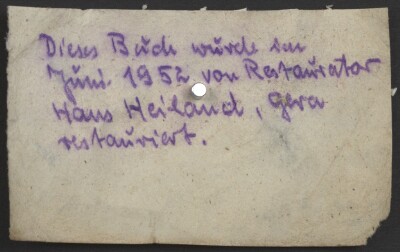 Dieses Buch wurde im
Juni 1952 von Restaurator
Hans Heiland, Gera
restauriert.